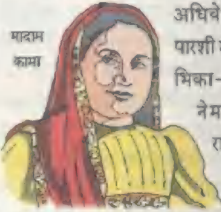 मादाम
कामा
अधिवे
पारशी
भिका-
नेम
रा